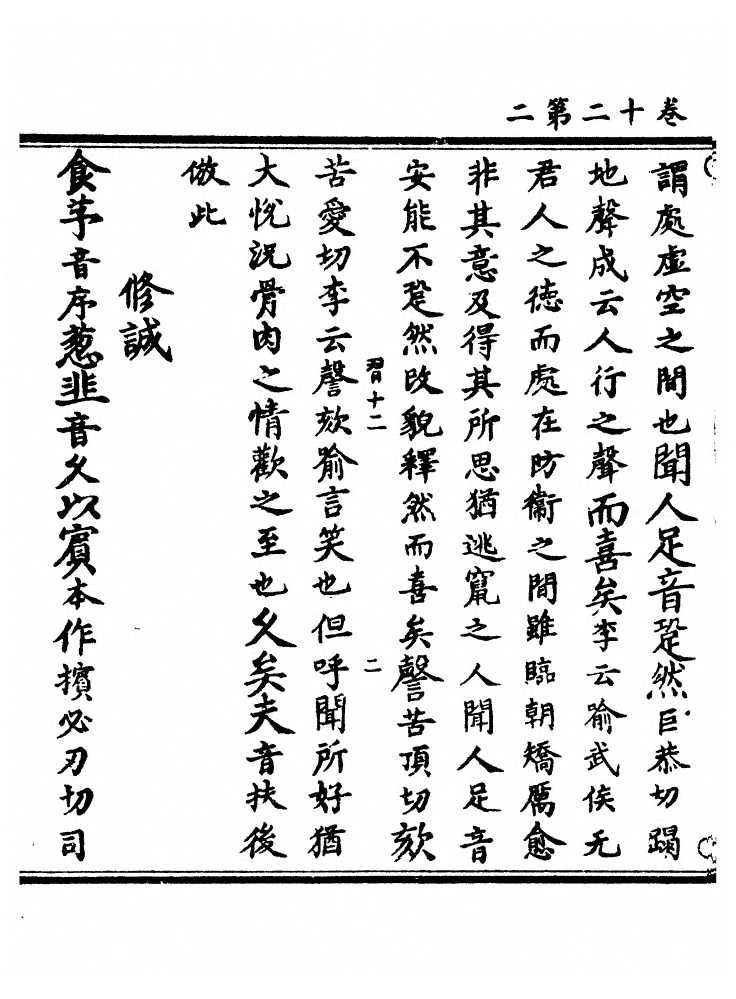 卷十二第二
謂處虛空之間也聞人足音跫然巨恭切蹋
地聲成云人行之聲而喜矣李云喻武侯无
君人之德而處在防衞之間雖臨朝矯厲愈
非其意及得其所思猶逃竄之人聞人足音
安能不跫然改貌釋然而喜矣謦苦頂切欬
習十二 二
苦愛切李云謦欬喻言笑也但呼聞所好猶
大悅況骨肉之情歡之至也久矣夫音扶後
倣此
修誠
食芧音序葱韭音久以賓本作擯必刃切司